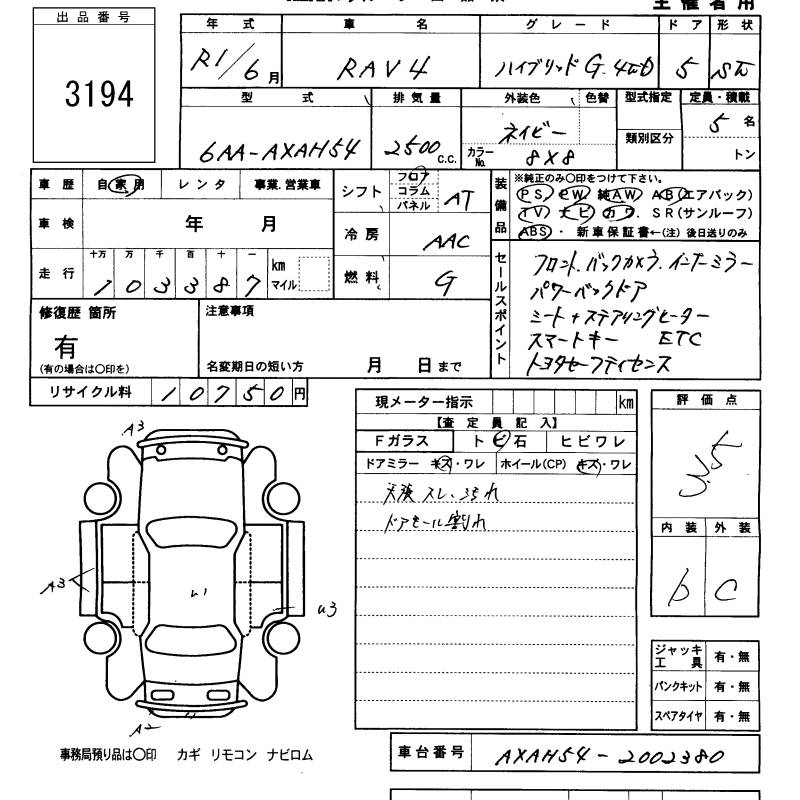 主催者用
出品番号
3194
年式 車名 グレード ドア 形状
R1/6月 RAV4 ハイブリッドG.4WD 5 SW
型式 排気量 外装色 色替 型式指定 定員・積載
6AA-AXAH54 2500 c.c. ネイビー 類別区分 5名
カラーNo. 8X8 トン
車歴 自家用 レンタ 事業.営業車
シフト フロア コラム パネル AT
装備品 ※純正のみ〇印をつけて下さい。
PS PW 純AW AB(エアバック)
TV ナビ カワ. SR(サンルーフ)
ABS・ 新車保証書←(注) 後日送りのみ
車検 年 月
冷房 AAC
走行 十万 万 千 百 十 一
103387 km マイル
燃料 G
セールスポイント
フロント.バックカメラ.インナーミラー
パワーバックドア
シート+ステアリングヒーター
スマートキー ETC
トヨタセーフティセンス
修復歴 箇所
有
(有の場合は〇印を)
注意事項
名変期日の短い方 月 日まで
リサイクル料 10750円
現メーター指示 km
【査定員記入】
Fガラス トビ石 ヒビワレ
ドアミラー キズ・ワレ ホイール(CP) キズ・ワレ
天張 スレ.ヨゴれ
ドアモール割れ
評価点
3.5
内装 外装
b C
ジャッキ工具 有・無
パンクキット 有・無
スペアタイヤ 有・無
A3
A3
u1
u3
A2
事務局預り品は〇印 カギ リモコン ナビロム
車台番号 AXAH54-2002380